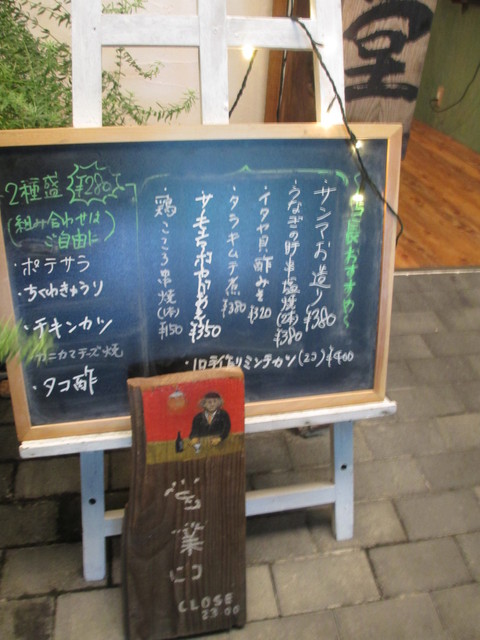 堂
2種盛 ¥280
(組み合わせは
ご自由に)
・ポテサラ
・ちくわきゅうり
・チキンカツ
・カニカマチーズ焼
・タコ酢
店長おすすめ
・サンマお造り ¥380
・うなぎの肝串塩焼(2本) ¥380
・イタヤ貝酢みそ ¥320
・タラキムチ煮 ¥380
¥350
鶏こころ串焼(1本) ¥150
ミンチカツ(2コ) ¥400
営業中
CLOSE
23 00